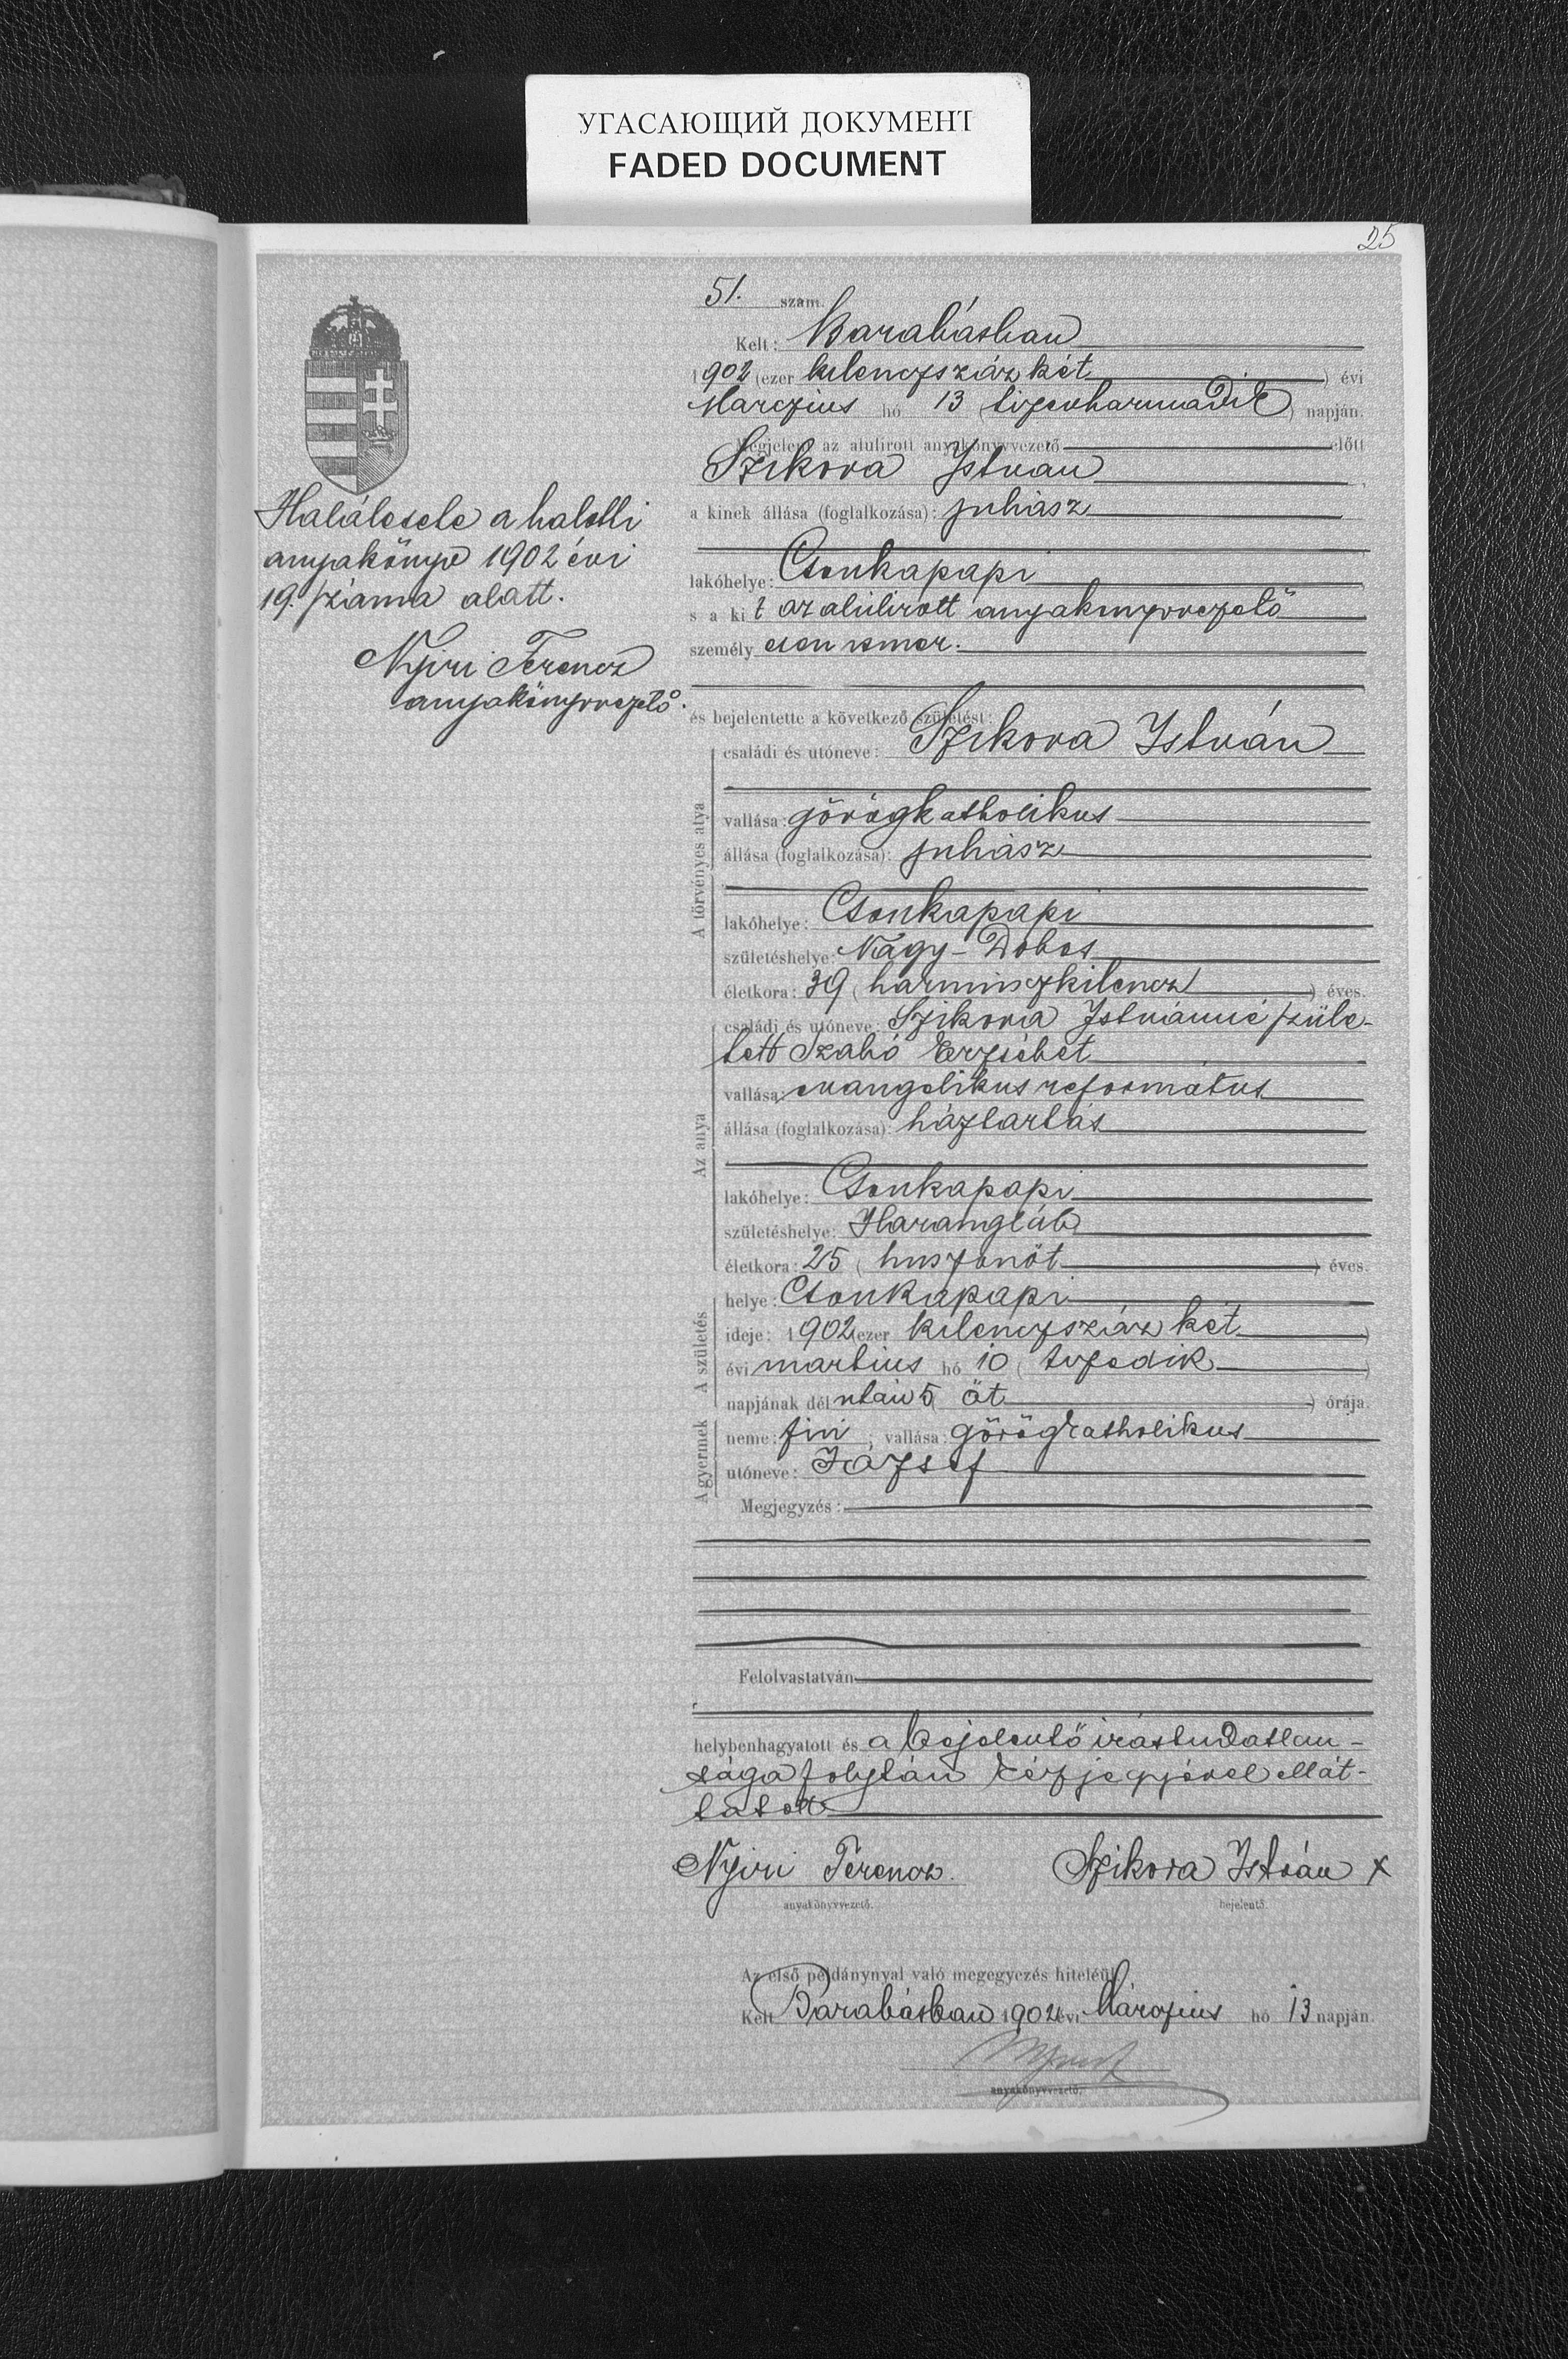 УГАСАЮЩИЙ ДОКУМЕНТ
FADED DOCUMENT
25
51. szám.
Kelt: Barabásban
1902 (ezer kilenczszáz két) évi
Marczius hó 13 (tizenharmadik) napján.
Megjelent az alulirott anyakönyvvezető előtt
Szikora Istvan
a kinek állása (foglalkozása): juhász
lakóhelye: Csonkapapi
s a kit az alúlirott anyakönyvvezető
személyesen ismer.
Halálesete a halotti
anyakönyv 1902 évi
19. száma alatt.
Nyiri Ferencz
anyakönyvvezető.
és bejelentette a következő születést:
A törvényes atya
családi és utóneve: Szikora István
vallása: görögkatholikus
állása (foglalkozása): juhász
lakóhelye: Csonkapapi
születéshelye: Nagy-Dobos
életkora: 39 (harminczkilencz) éves.
Az anya
családi és utóneve: Szikora Istvánné szüle-
tett Szabó Erzsébet
vallása: evangelikus református
állása (foglalkozása): háztartás
lakóhelye: Csonkapapi
születéshelye: Harangláb
életkora: 25 (huszonöt) éves.
A születés
helye: Csonkapapi
ideje: 1902 (ezer kilenczszáz két)
évi martius hó 10 (tizedik)
napjának délutáni 5 (öt) órája.
A gyermek
neme: fiú; vallása: görögkatholikus
utóneve: József
Megjegyzés:
Felolvastatván
helybenhagyatott és a bejelentő irástudatlan-
sága folytán kézjegyével ellát-
tatott
Nyiri Ferencz. Szikora István x
anyakönyvvezető. bejelentő.
Az első példánynyal való megegyezés hiteléül
Kelt Barabásban 1902 évi Márczius hó 13 napján.
anyakönyvvezető.